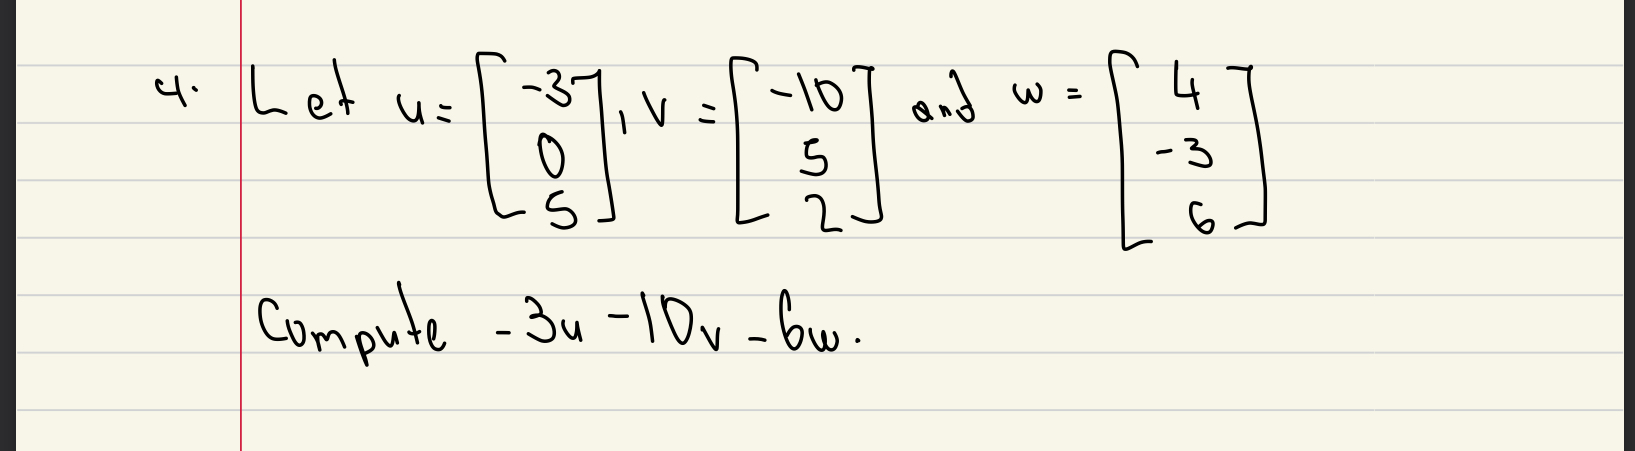 4. Let u = [-3 0 5], v = [-10 5 2] and w = [4 -3 6]
Compute -3u -10v -6w.